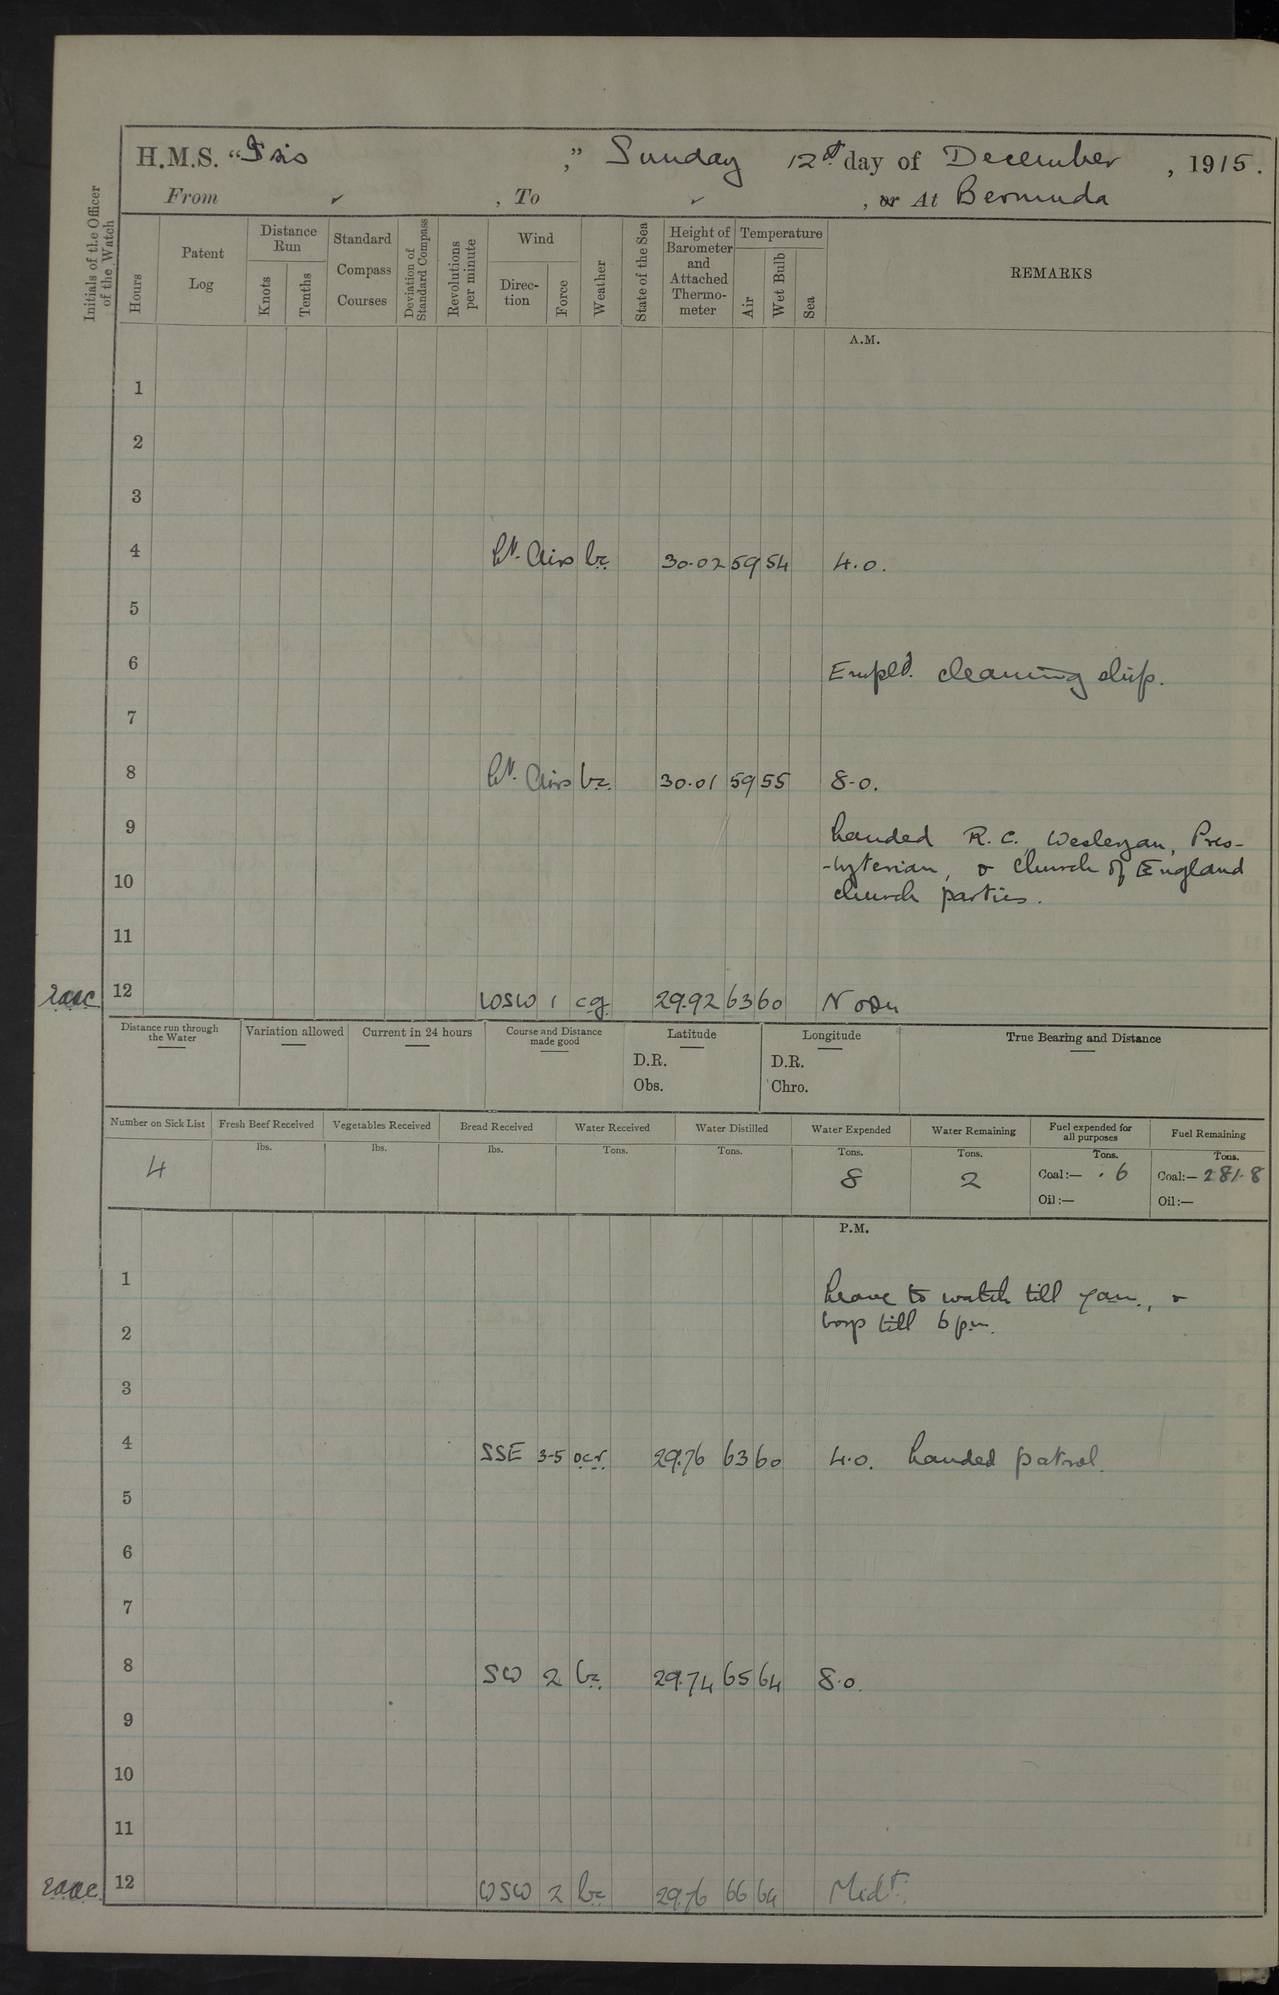 H.M.S. "Isis," Sunday 12th day of December, 1915.
From ✓, To ✓, or At Bermuda
Initials of the Officer of the Watch
Hours
Patent Log
Distance Run
Knots
Tenths
Standard Compass Courses
Deviation of Standard Compass
Revolutions per minute
Wind
Direc-tion
Force
Weather
State of the Sea
Height of Barometer and Attached Thermo-meter
Temperature
Air
Wet Bulb
Sea
REMARKS
A.M.
1
2
3
4 Lt. Airs bc 30.02 59 54 4.0.
5
6 Empld. cleaning ship.
7
8 Lt. Airs bc. 30.01 59 55 8.0.
9 Landed R.C., Wesleyan, Pres-
-byterian, & Church of England
10 church parties.
11
12 WSW 1 cg 29.92 63 60 Noon
Distance run through the Water
Variation allowed
Current in 24 hours
Course and Distance made good
Latitude
D.R.
Obs.
Longitude
D.R.
Chro.
True Bearing and Distance
Number on Sick List
4
Fresh Beef Received
lbs.
Vegetables Received
lbs.
Bread Received
lbs.
Water Received
Tons.
Water Distilled
Tons.
Water Expended
Tons.
8
Water Remaining
Tons.
2
Fuel expended for all purposes
Tons.
Coal:— .6
Oil:—
Fuel Remaining
Tons.
Coal:— 281.8
Oil:—
P.M.
1 Leave to watch till 7am., &
2 boys till 6pm.
3
4 SSE 3-5 ocr 29.76 63 60 4.0. Landed patrol.
5
6
7
8 SW 2 bc. 29.74 65 64 8.0.
9
10
11
12 WSW 2 bc 29.76 66 64 Midt.